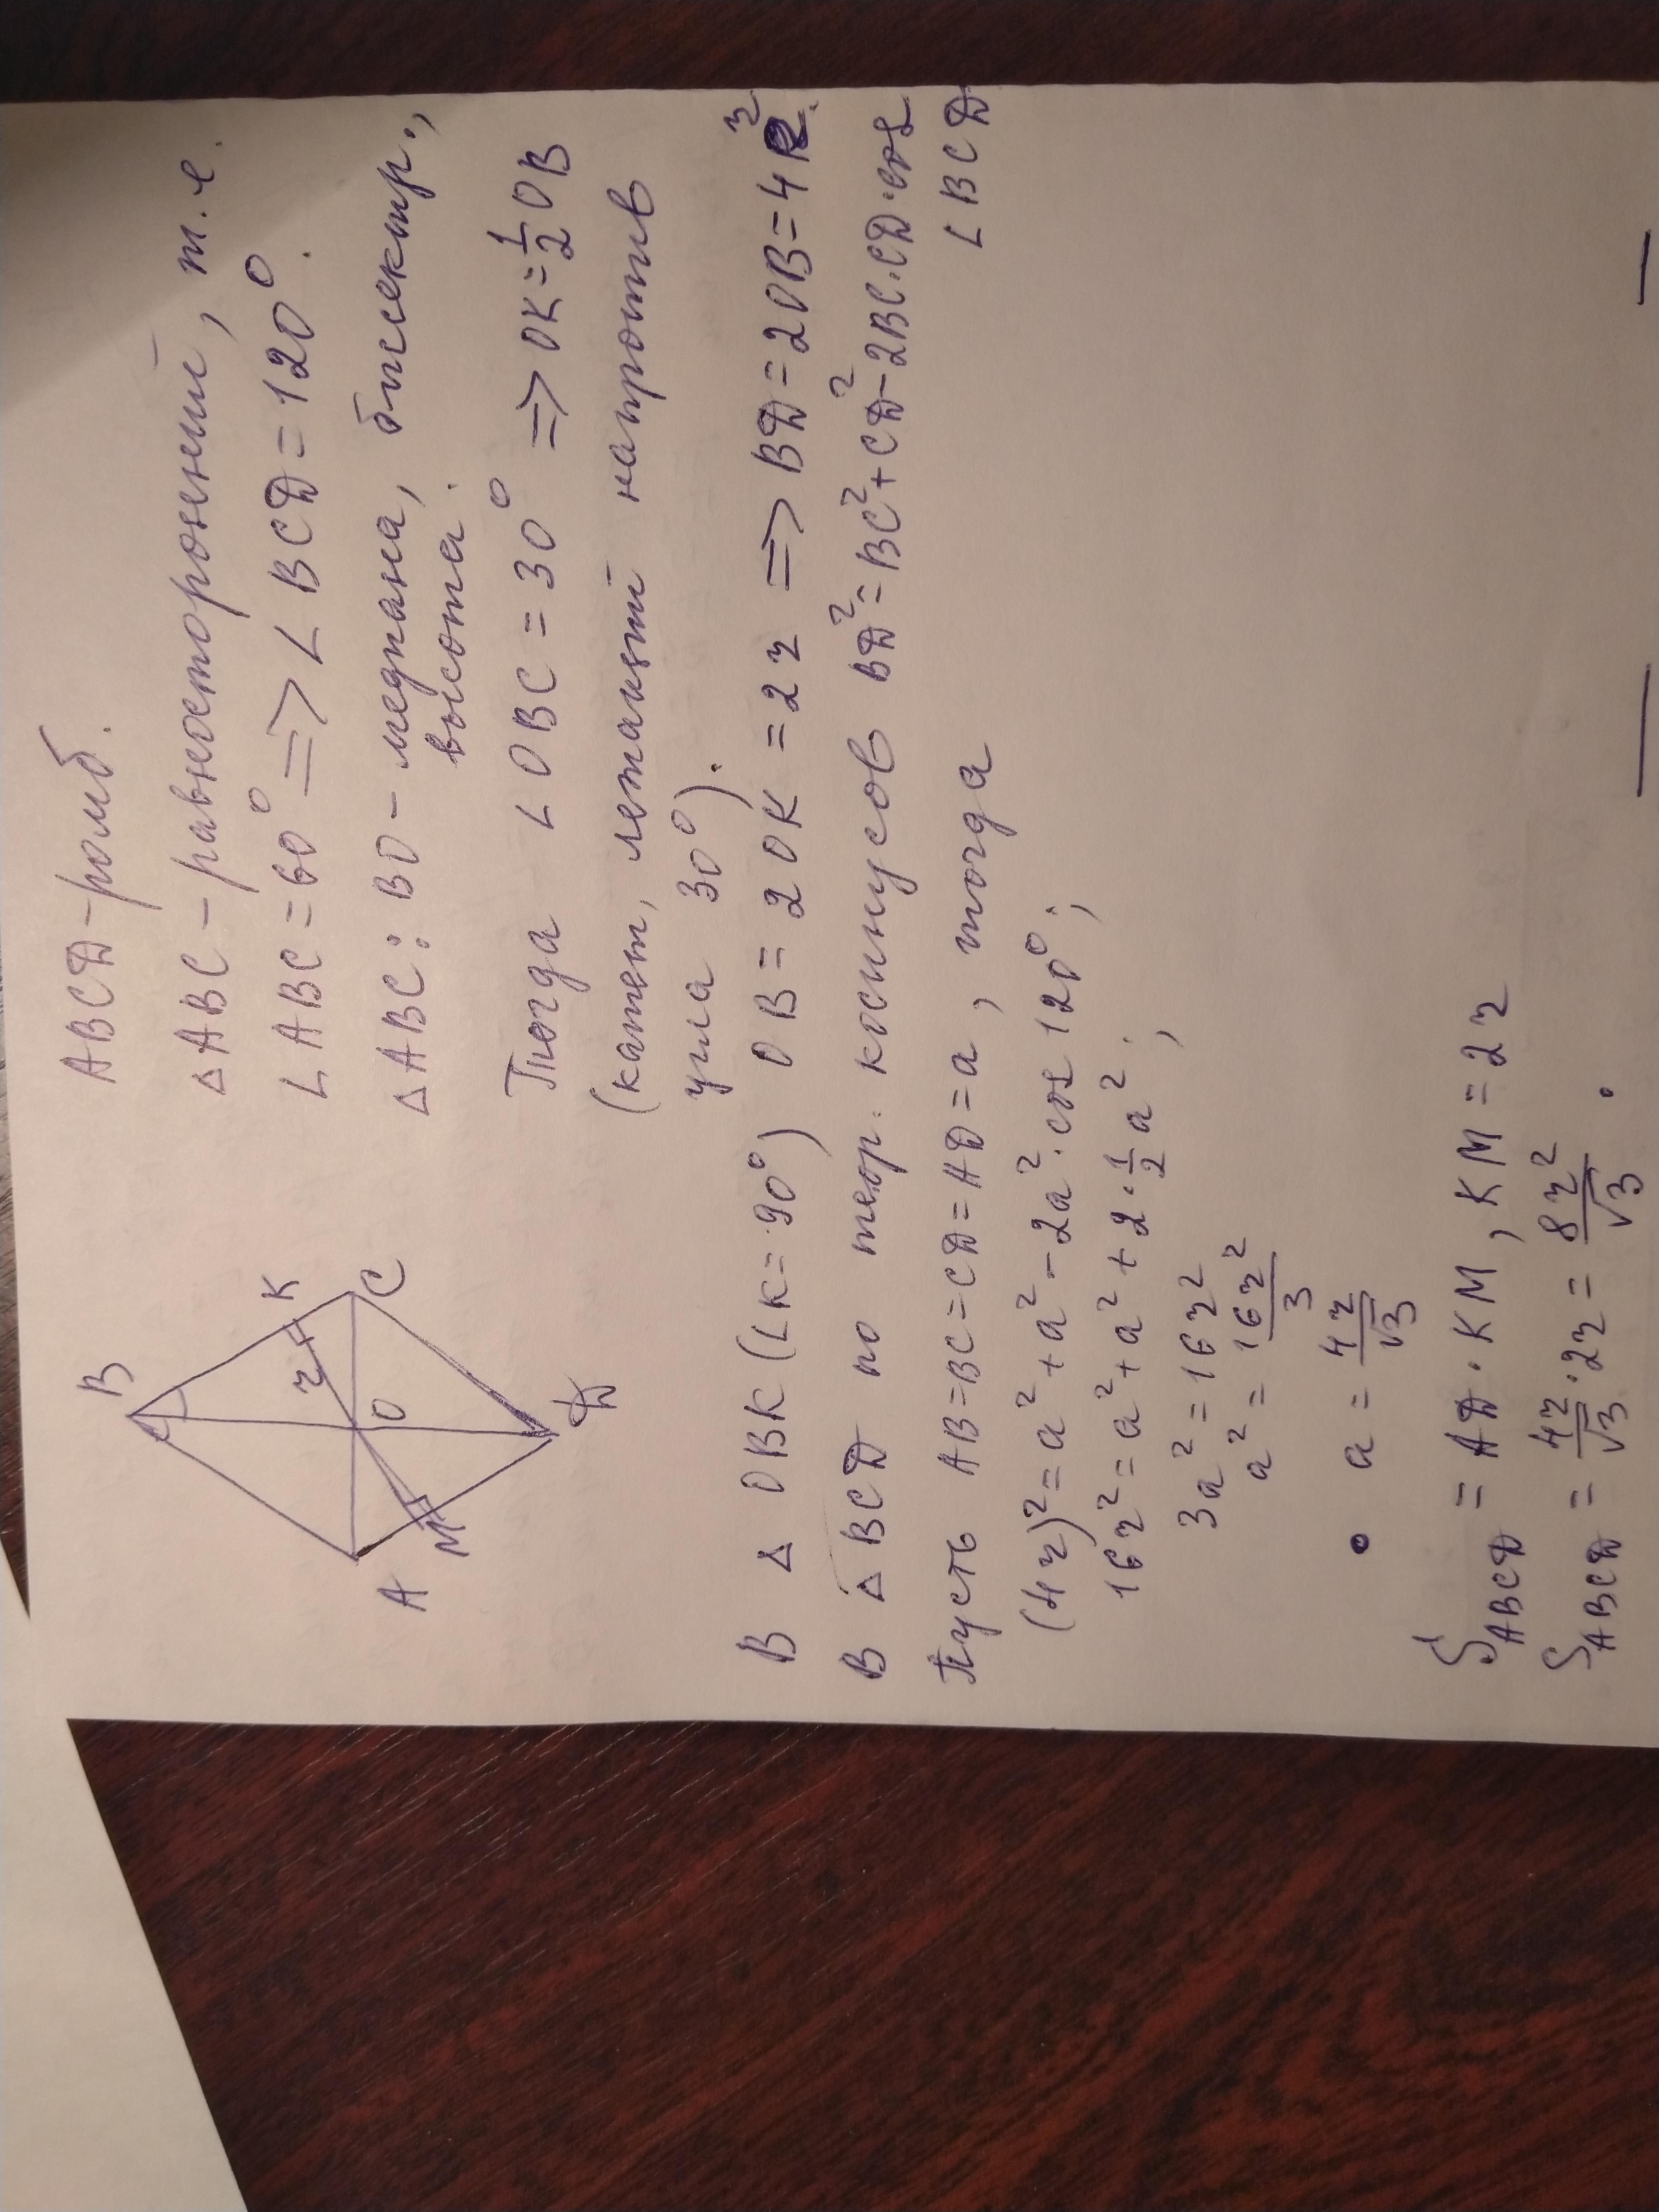 ABCД - ромб.
△ABC - равносторонний, т.е.
∠ABC = 60° => ∠BCД = 120°.
△ABC: BO - медиана, биссектр.,
высота.
Тогда ∠OBC = 30° => OK = 1/2 OB
(катет, лежащий напротив
угла 30°).
B
K
r
O
C
A
M
Д
В △ OBK (∠K = 90°) OB = 2 OK = 2r => BД = 2OB = 4r.
В △BCД по теор. косинусов BД² = BC² + CД² - 2BC·CД·cos
∠BCД
Пусть AB = BC = CД = AД = a, тогда
(4r)² = a² + a² - 2a²·cos 120°;
16r² = a² + a² + 2·1/2 a²;
3a² = 16r²
a² = 16r²/3
a = 4r/√3
S ABCД = AД·KM, KM = 2r
S ABCД = 4r/√3 · 2r = 8r²/√3.